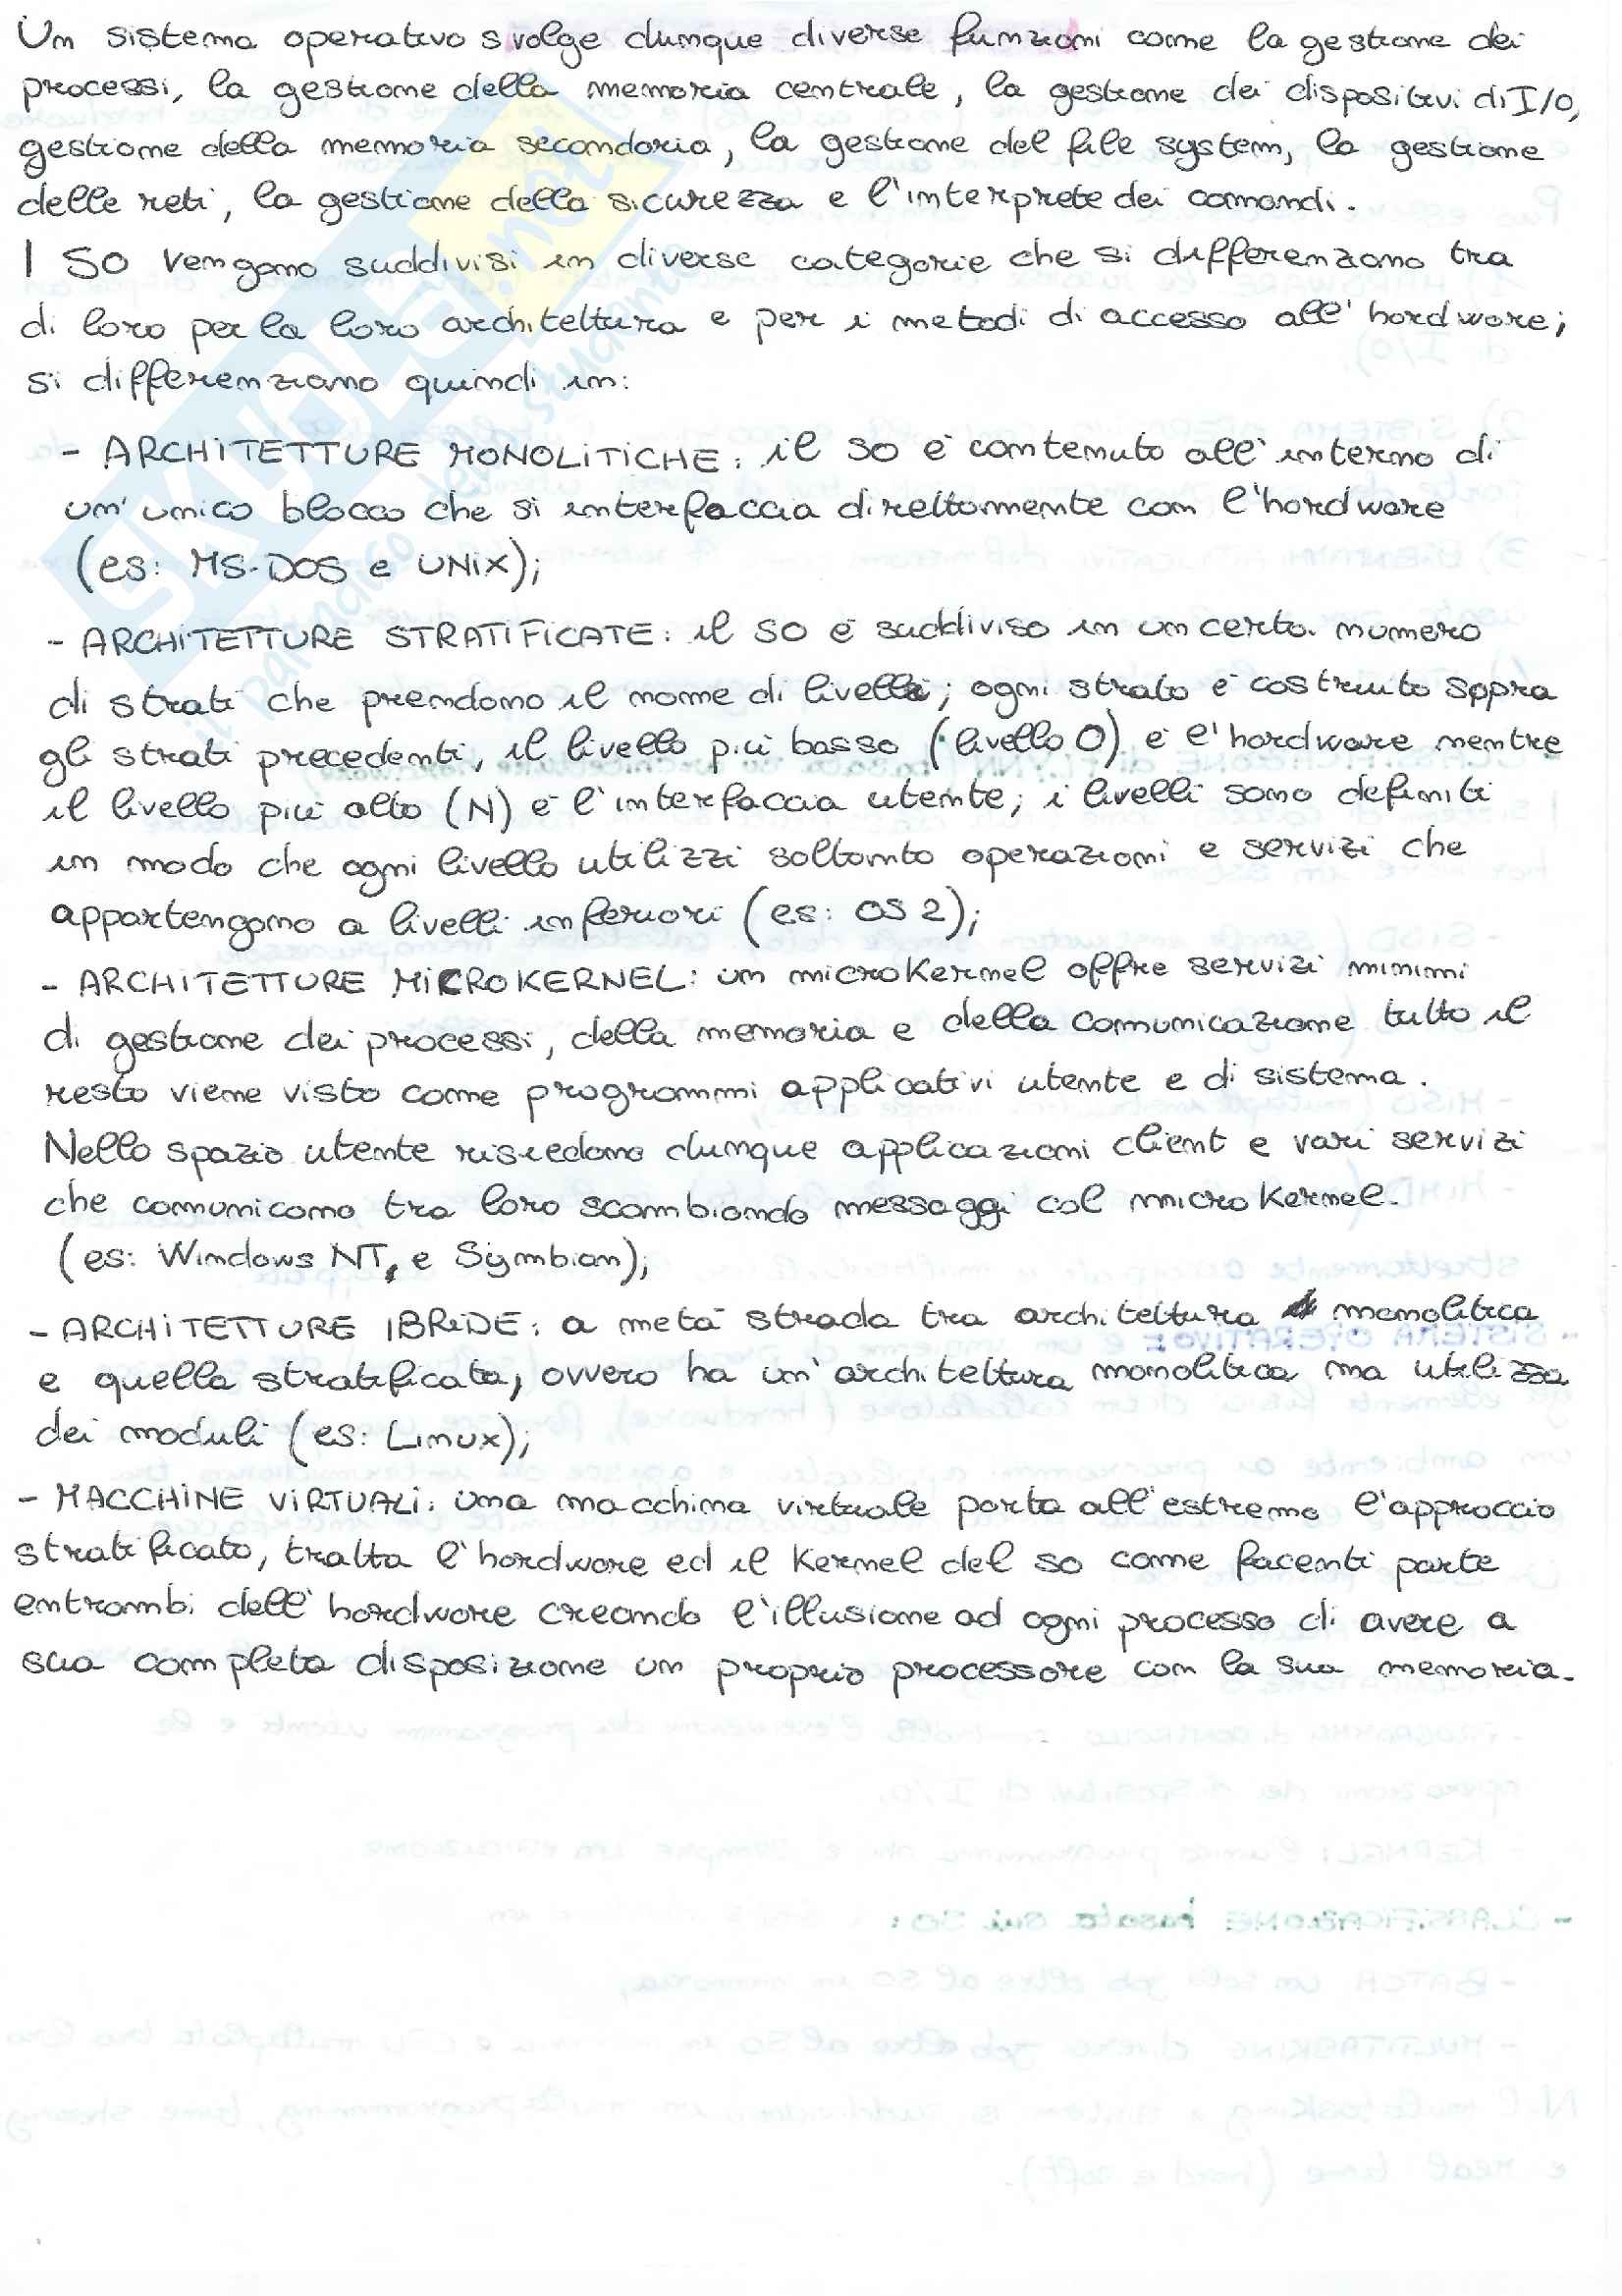 Un sistema operativo svolge dunque diverse funzioni come la gestione dei
processi, la gestione della memoria centrale, la gestione dei dispositivi di I/O,
gestione della memoria secondaria, la gestione del file system, la gestione
delle reti, la gestione della sicurezza e l'interprete dei comandi.
I SO vengono suddivisi in diverse categorie che si differenziano tra
di loro per la loro architettura e per i metodi di accesso all'hardware;
si differenziano quindi in:
- ARCHITETTURE MONOLITICHE: il SO è contenuto all'interno di
un'unico blocco che si interfaccia direttamente con l'hardware
(es: MS-DOS e UNIX);
- ARCHITETTURE STRATIFICATE: il SO è suddiviso in un certo numero
di strati che prendono il nome di livelli; ogni strato è costruito sopra
gli strati precedenti, il livello più basso (livello 0) è l'hardware mentre
il livello più alto (N) è l'interfaccia utente; i livelli sono definiti
in modo che ogni livello utilizzi soltanto operazioni e servizi che
appartengono a livelli inferiori (es: OS 2);
- ARCHITETTURE MICROKERNEL: un microkernel offre servizi minimi
di gestione dei processi, della memoria e della comunicazione tutto il
resto viene visto come programmi applicativi utente e di sistema.
Nello spazio utente risiedono dunque applicazioni client e vari servizi
che comunicano tra loro scambiando messaggi col microkernel.
(es: Windows NT, e Symbian);
- ARCHITETTURE IBRIDE: a metà strada tra architettura monolitica
e quella stratificata, ovvero ha un'architettura monolitica ma utilizza
dei moduli (es: Linux);
- MACCHINE VIRTUALI: una macchina virtuale porta all'estremo l'approccio
stratificato, tratta l'hardware ed il Kernel del SO come facenti parte
entrambi dell'hardware creando l'illusione ad ogni processo di avere a
sua completa disposizione un proprio processore con la sua memoria.
SKUOLA.net
il paradiso dello studente